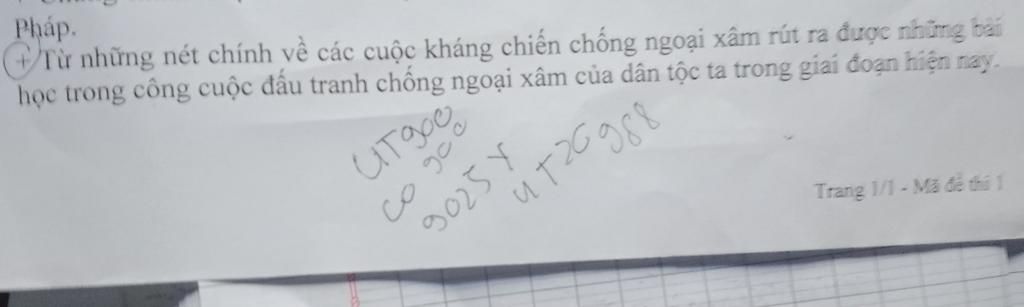 Pháp.
+ Từ những nét chính về các cuộc kháng chiến chống ngoại xâm rút ra được những bài
học trong công cuộc đấu tranh chống ngoại xâm của dân tộc ta trong giai đoạn hiện nay.
UT900
CO 900
9025Y
UT20988
Trang 1/1 - Mã đề thi 1